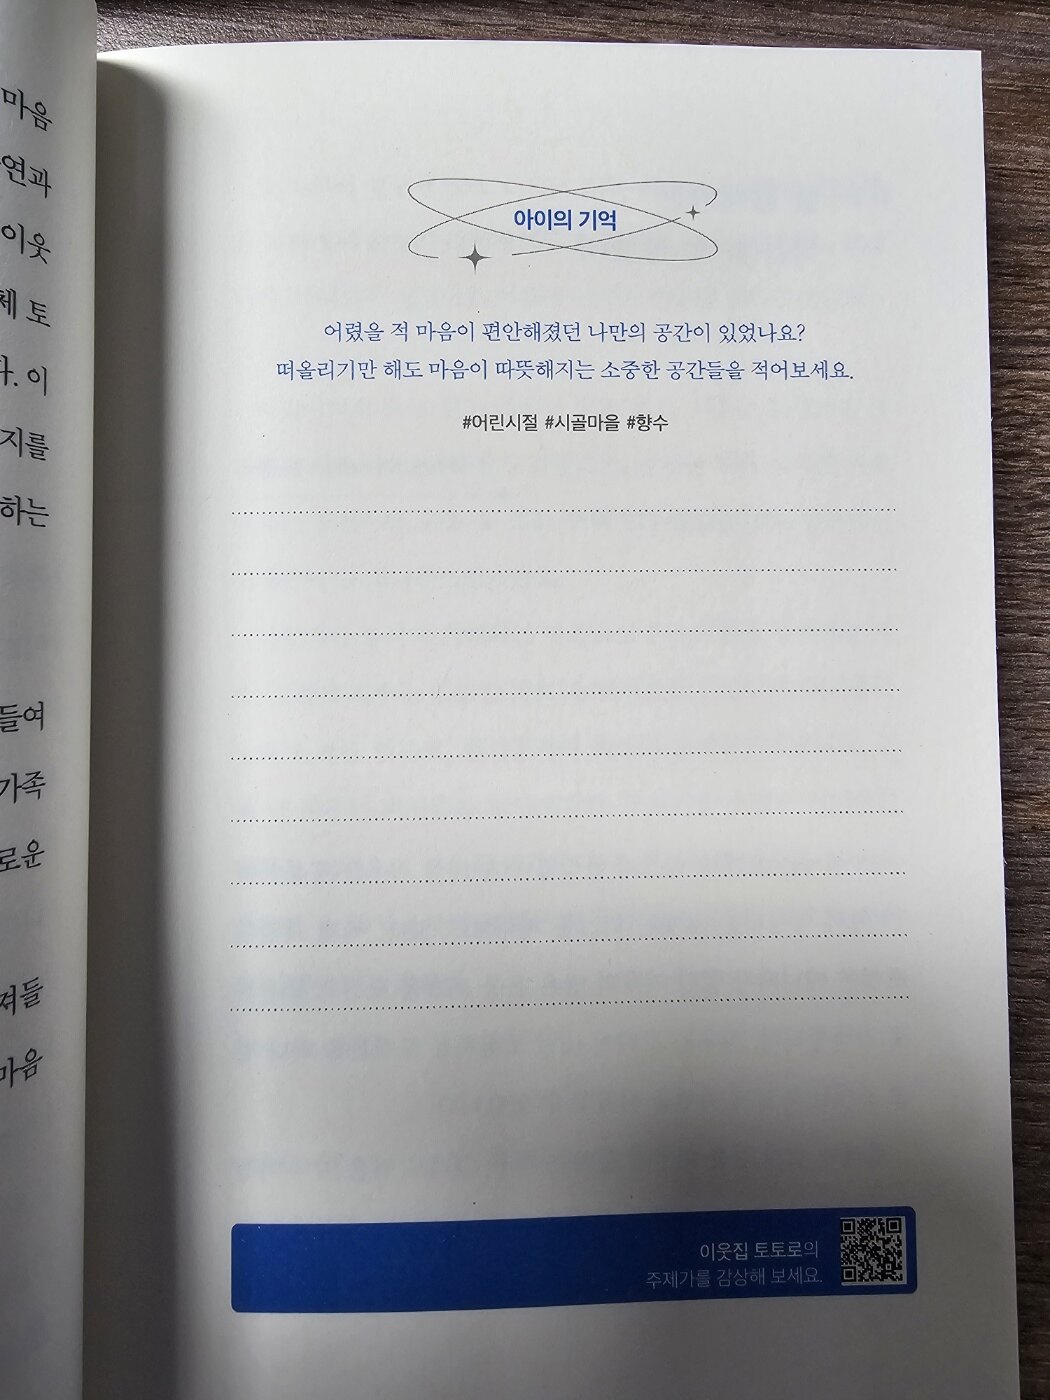 마음
연과
이웃
체 토
다. 이
지를
하는
들여
가족
로운
져들
마음
아이의 기억
어렸을 적 마음이 편안해졌던 나만의 공간이 있었나요?
떠올리기만 해도 마음이 따뜻해지는 소중한 공간들을 적어보세요.
#어린시절 #시골마을 #향수
이웃집 토토로의
주제가를 감상해 보세요.